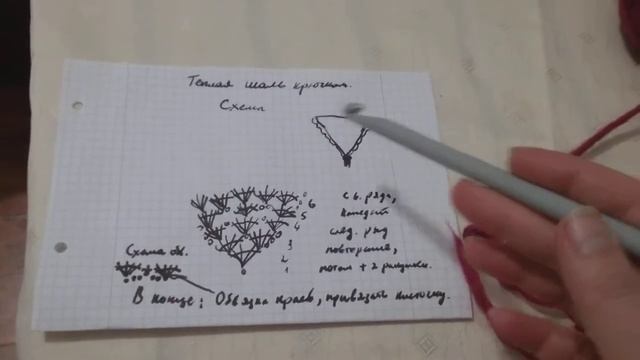 Теплая шаль крючком.
Схема
6
5
4
3
2
1
с 6. ряда,
каждый
след. ряд
повторите,
потом + 2 рисунка.
Схема обв.
В конце: Обвязка краев, привязать кисточку.